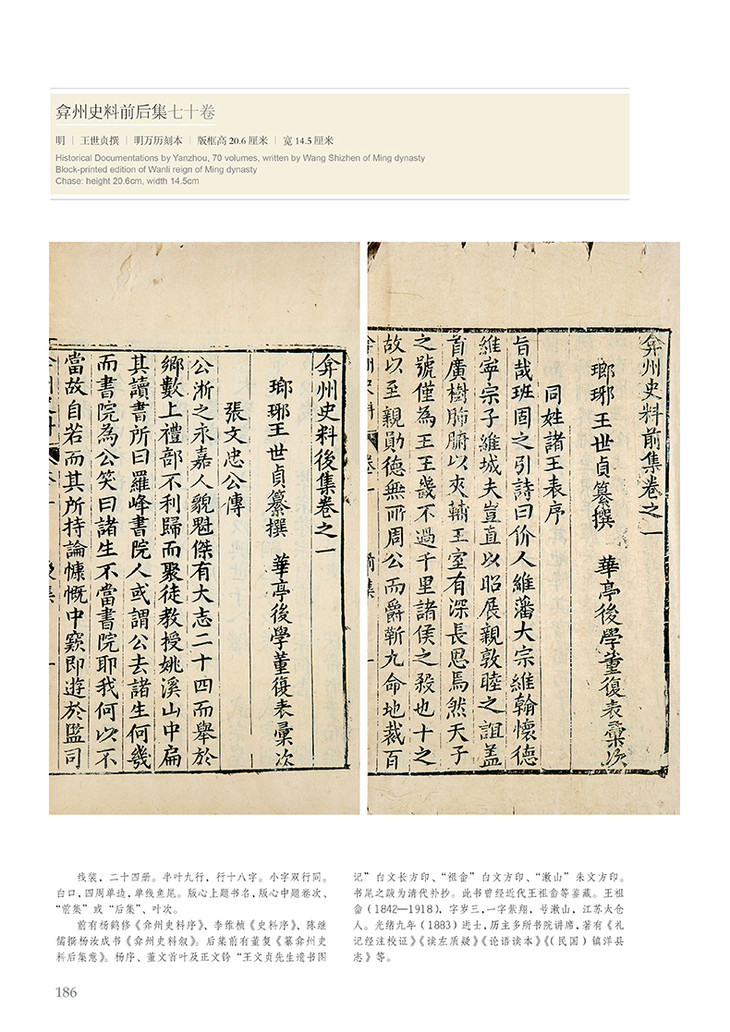 弇州史料前后集七十卷
明 | 王世贞撰 | 明万历刻本 | 版框高 20.6 厘米 | 宽 14.5 厘米
Historical Documentations by Yanzhou, 70 volumes, written by Wang Shizhen of Ming dynasty
Block-printed edition of Wanli reign of Ming dynasty
Chase: height 20.6cm, width 14.5cm
弇州史料前集卷之一
瑯琊王世貞纂撰 華亭後學董復表彙次
同姓諸王表序
旨哉班固之引詩曰价人維藩大宗維翰懷德
維寧宗子維城夫豈直以昭展親敦睦之誼盖
首廣樹肺腑以夾輔王室有深長思焉然天子
之號僅為王王畿不過千里諸侯之殺也十之
故以至親勛德無所周公而爵靳九命地裁百
弇州史料後集卷之一
瑯琊王世貞纂撰 華亭後學董復表彙次
張文忠公傳
公浙之永嘉人貌魁傑有大志二十四而舉於
鄉數上禮部不利歸而聚徒教授姚溪山中扁
其讀書所曰羅峰書院人或謂公去諸生何幾
而書院為公笑曰諸生不當書院耶我何以不
當故自若而其所持論慷慨中窾即遊於監司
线装，二十四册。半叶九行，行十八字。小字双行同。
白口，四周单边，单线鱼尾。版心上题书名，版心中题卷次、
“前集”或“后集”、叶次。
前有杨鹤修《弇州史料序》、李维桢《史料序》、陈继
儒撰杨汝成书《弇州史料叙》。后集前有董复《纂弇州史
料后集意》。杨序、董文首叶及正文钤“王文贞先生遗书图
记”白文长方印、“祖畬”白文方印、“漱山”朱文方印。
书尾之跋为清代补抄。此书曾经近代王祖畬等鉴藏。王祖
畬（1842—1918），字岁三，一字紫翔，号漱山，江苏太仓
人。光绪九年（1883）进士，历主多所书院讲席，著有《礼
记经注校证》《读左质疑》《论语读本》《（民国）镇洋县
志》等。
186